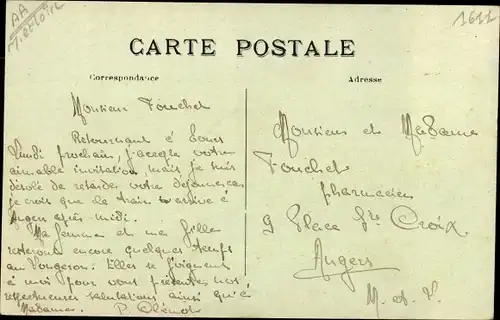 AA
1611
CARTE POSTALE
Correspondance
Adresse
Monsieur Fouchet
Retournant à Tours
lundi prochain, j'accepte votre
aimable invitation mais je suis
désolé de retarder votre déjeuner car
je crois que le train arrive à
Angers après-midi.
Ma femme et ma fille
resteront encore quelques temps
au Vongeron. Elles se joignent
à moi pour vous présenter nos
respectueuses salutations ainsi qu'à
Madame. P.
Monsieur et Madame
Fouchet
pharmacien
9 Place Ste Croix
Angers
M. et L.